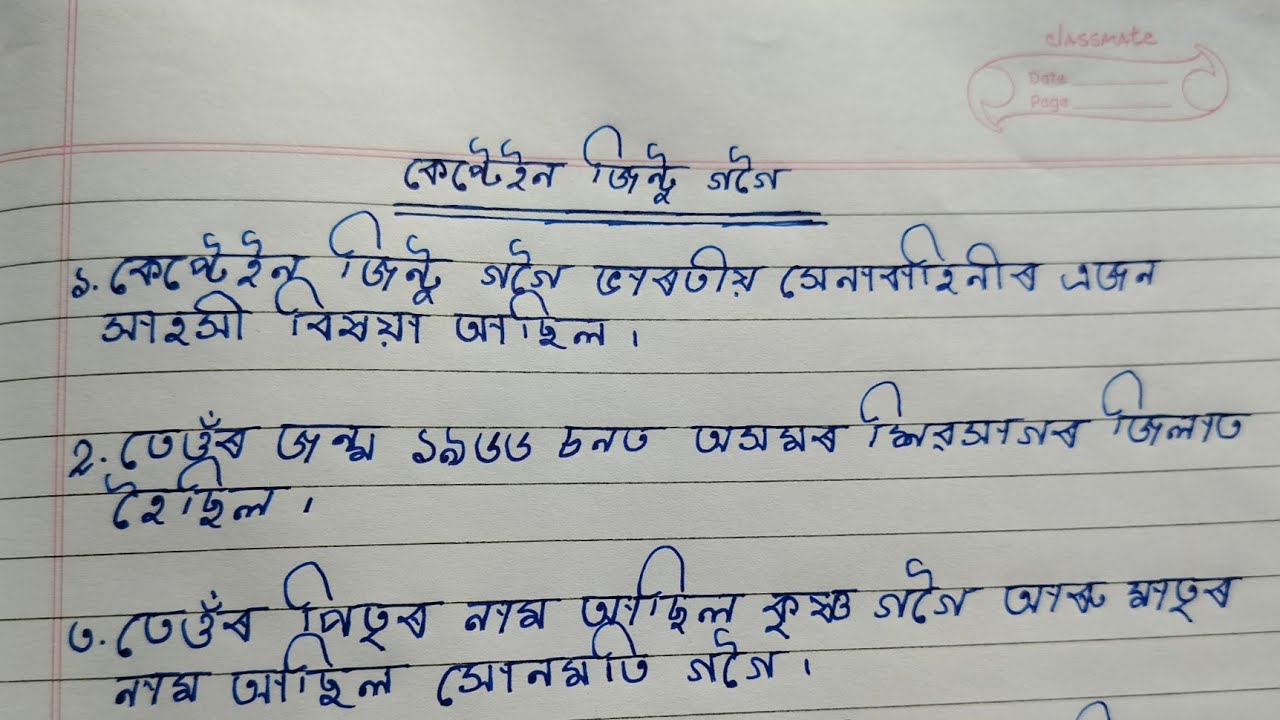 classmate
Date
Page
কেপ্টেইন জিন্টু গগৈ
১. কেপ্টেইন জিন্টু গগৈ ভাৰতীয় সেনাবাহিনীৰ এজন
সাহসী বিষয়া আছিল।
২. তেওঁৰ জন্ম ১৯৬৬ চনত অসমৰ শিৱসাগৰ জিলাত
হৈছিল।
৩. তেওঁৰ পিতৃৰ নাম আছিল কৃষ্ণ গগৈ আৰু মাতৃৰ
নাম আছিল সোনমতি গগৈ।